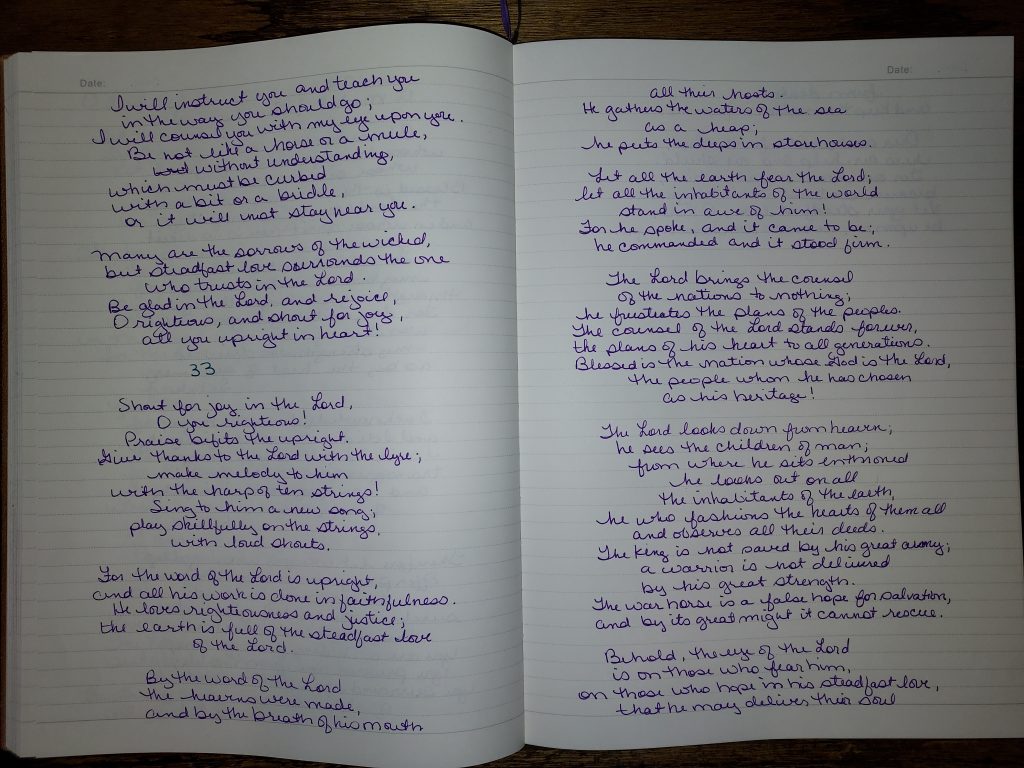 Date:
I will instruct you and teach you
in the way you should go;
I will counsel you with my eye upon you.
Be not like a horse or a mule,
without understanding,
which must be curbed
with a bit or a bridle,
or it will not stay near you.
Many are the sorrows of the wicked,
but steadfast love surrounds the one
who trusts in the Lord.
Be glad in the Lord, and rejoice,
O righteous, and shout for joy,
all you upright in heart!
33
Shout for joy in the Lord,
O you righteous!
Praise befits the upright.
Give thanks to the Lord with the lyre;
make melody to him
with the harp of ten strings!
Sing to him a new song;
play skillfully on the strings,
with loud shouts.
For the word of the Lord is upright,
and all his work is done in faithfulness.
He loves righteousness and justice;
the earth is full of the steadfast love
of the Lord.
By the word of the Lord
the heavens were made,
and by the breath of his mouth
Date:
all their hosts.
He gathers the waters of the sea
as a heap;
he puts the deeps in storehouses.
Let all the earth fear the Lord;
let all the inhabitants of the world
stand in awe of him!
For he spoke, and it came to be;
he commanded and it stood firm.
The Lord brings the counsel
of the nations to nothing;
he frustrates the plans of the peoples.
The counsel of the Lord stands forever,
the plans of his heart to all generations.
Blessed is the nation whose God is the Lord,
the people whom he has chosen
as his heritage!
The Lord looks down from heaven;
he sees the children of man;
from where he sits enthroned
he looks out on all
the inhabitants of the earth,
he who fashions the hearts of them all
and observes all their deeds.
The king is not saved by his great army;
a warrior is not delivered
by his great strength.
The war horse is a false hope for salvation,
and by its great might it cannot rescue.
Behold, the eye of the Lord
is on those who fear him,
on those who hope in his steadfast love,
that he may deliver their soul